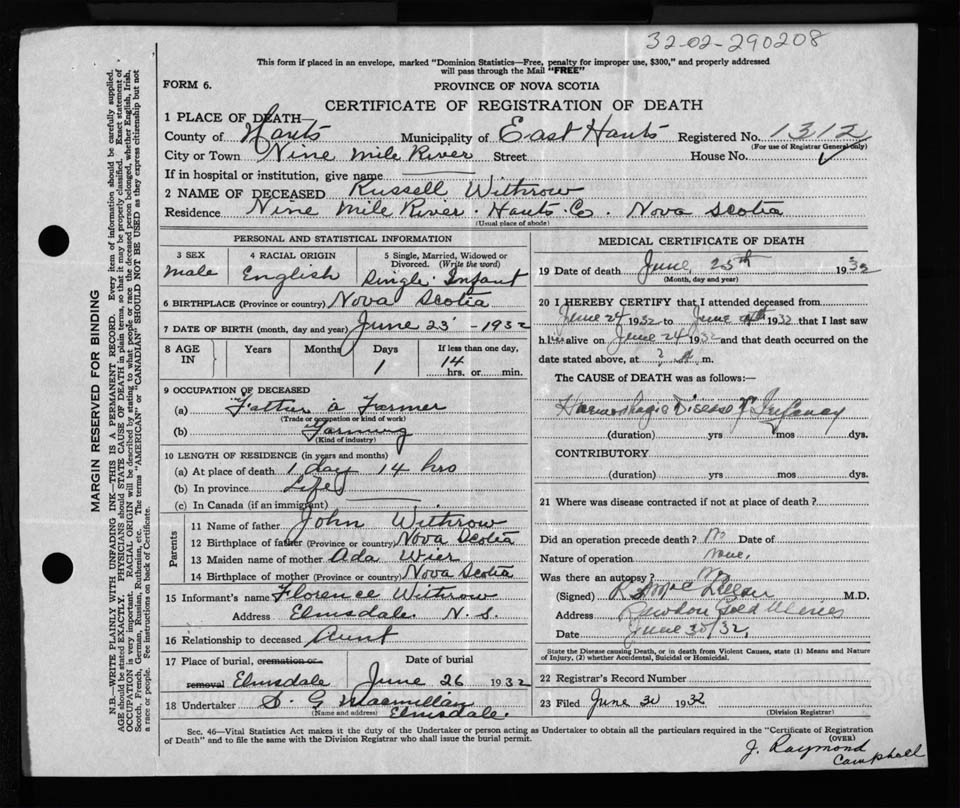 32-02-290208
This form if placed in an envelope, marked "Dominion Statistics—Free, penalty for improper use, $300," and properly addressed
will pass through the Mail "FREE"
FORM 6.
PROVINCE OF NOVA SCOTIA
CERTIFICATE OF REGISTRATION OF DEATH
1 PLACE OF DEATH—
County of Hants Municipality of East Hants Registered No. 1312
(For use of Registrar General only)
City or Town Nine Mile River Street House No.
If in hospital or institution, give name
2 NAME OF DECEASED Russell Withrow
Residence Nine Mile River. Hants. Co. Nova Scotia
(Usual place of abode)
PERSONAL AND STATISTICAL INFORMATION
3 SEX 4 RACIAL ORIGIN 5 Single, Married, Widowed or Divorced. (Write the word)
Male English Single Infant
6 BIRTHPLACE (Province or country) Nova Scotia
7 DATE OF BIRTH (month, day and year) June 23 - 1932
8 AGE IN Years Months Days If less than one day,
1 14 hrs. or min.
9 OCCUPATION OF DECEASED
(a) Father a Farmer
(Trade or occupation or kind of work)
(b) Farming
(Kind of industry)
10 LENGTH OF RESIDENCE (in years and months)
(a) At place of death 1 day 14 hrs
(b) In province Life
(c) In Canada (if an immigrant)
Parents
11 Name of father John Withrow
12 Birthplace of father (Province or country) Nova Scotia
13 Maiden name of mother Ada Wier
14 Birthplace of mother (Province or country) Nova Scotia
15 Informant's name Florence Withrow
Address Elmsdale N.S.
16 Relationship to deceased Aunt
17 Place of burial, cremation or removal Elmsdale Date of burial June 26 1932
18 Undertaker S. G Macmillan
(Name and address) Elmsdale.
MEDICAL CERTIFICATE OF DEATH
19 Date of death June 25th 1932
(Month, day and year)
20 I HEREBY CERTIFY that I attended deceased from
June 24 1932 to June 24th 1932 that I last saw
him alive on June 24 1932 and that death occurred on the
date stated above, at ? a m.
The CAUSE OF DEATH was as follows:—
Haemorrhagic Disease of Infancy
(duration) yrs mos dys.
CONTRIBUTORY
(duration) yrs mos dys.
21 Where was disease contracted if not at place of death?
Did an operation precede death? no Date of
Nature of operation none.
Was there an autopsy? no
(Signed) M.D.
Address Rawdon Gold Mines
Date June 30/32,
State the Disease causing Death, or in death from Violent Causes, state (1) Means and Nature
of Injury, (2) whether Accidental, Suicidal or Homicidal.
22 Registrar's Record Number
23 Filed June 30 1932
(Division Registrar)
Sec. 46—Vital Statistics Act makes it the duty of the Undertaker or person acting as Undertaker to obtain all the particulars required in the "Certificate of Registration
of Death" and to file the same with the Division Registrar who shall issue the burial permit.
(OVER)
J. Raymond Campbell
MARGIN RESERVED FOR BINDING
N.B.—WRITE PLAINLY WITH UNFADING INK—THIS IS A PERMANENT RECORD. Every item of information should be carefully supplied.
AGE should be stated EXACTLY. PHYSICIANS should STATE CAUSE OF DEATH in plain terms, so that it may be properly classified. Exact statement of
OCCUPATION is very important. RACIAL ORIGIN will be described by stating to what people or race the deceased person belonged, whether English, Irish,
Scotch, French, German, Russian, Ruthenian, etc. The terms "AMERICAN" or "CANADIAN" SHOULD NOT BE USED as they express citizenship but not
a race or people. See instructions on back of Certificate.